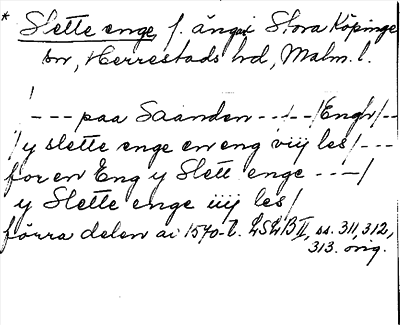 * Slette enge, f. ängar i Stora Köpinge
sn, Herrestads hd, Malm. l.
/
--- paa Saanden --- / -- / Engh / --
/ y slette enge en eng viij les / ---
for en Eng y Slett enge --- /
y Slette enge iiij les /
förra delen av 1570-t. LSLB II, ss. 311, 312,
313. orig.